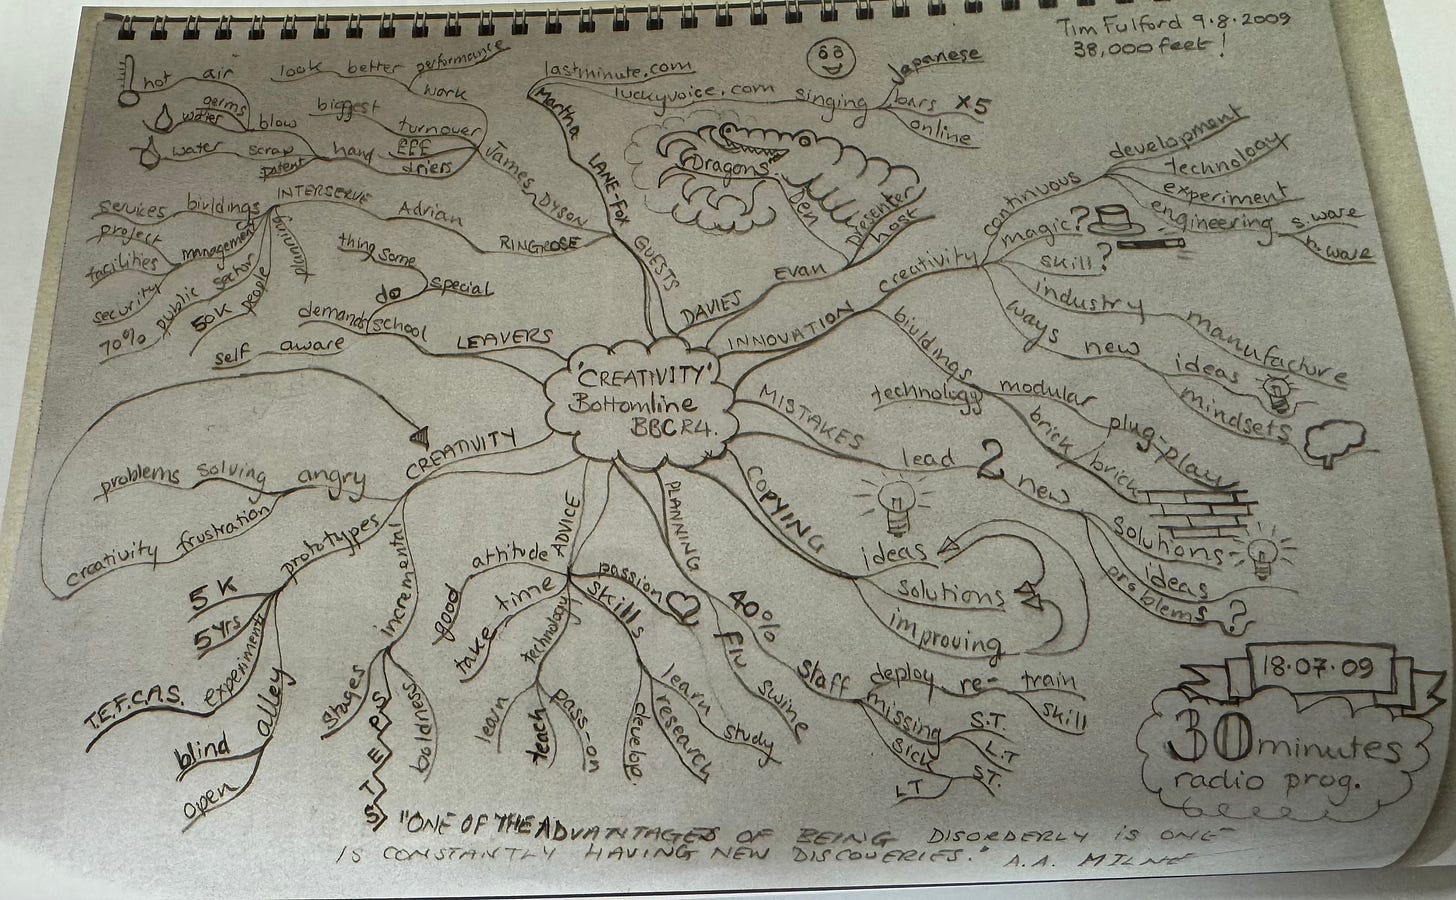 Tim Fulford 9.8.2009
38,000 feet!
'CREATIVITY'
Bottomline
BBC R4.
GUESTS
LANE-FOX
Martha
lastminute.com
luckyvoice.com
singing
Japanese
bars x5
online
James DYSON
work
look better performance
turnover
biggest
£££
hand driers
blow
hot air
germs
water
scrap
water
patent
RINGROSE
Adrian
INTERSERVE
biuldings
services
management
project
facilities
security
public sector
70%
people
50K
planning
DAVIES
Evan
Den
Dragons'
Presenter
host
INNOVATION
creativity
continuous
development
technology
experiment
engineering
s.ware
h.ware
magic?
skill?
industry
manufacture
ways new
ideas
mindsets
biuldings
technology
modular
plug-play
brick
brick
MISTAKES
lead 2 new
solutions
ideas
problems ?
COPYING
ideas
solutions
improving
PLANNING
40%
staff
deploy re-
train
skill
missing
S.T.
L.T
sick
S.T.
LT
flu
swine
ADVICE
attitude
good
time
take
technology
learn
teach
pass-on
passion
skills
learn
study
research
develop
CREATIVITY
angry
solving
problems
frustration
creativity
prototypes
5K
5yrs
experiment
T.E.F.C.A.S.
alley
blind
open
incremental
stages
STEPS
boldness
LEAVERS
school
demands
do
special
some
thing
aware
self
18.07.09
30 minutes
radio prog.
"ONE OF THE ADVANTAGES OF BEING DISORDERLY IS ONE
IS CONSTANTLY HAVING NEW DISCOVERIES." A.A. MILNE